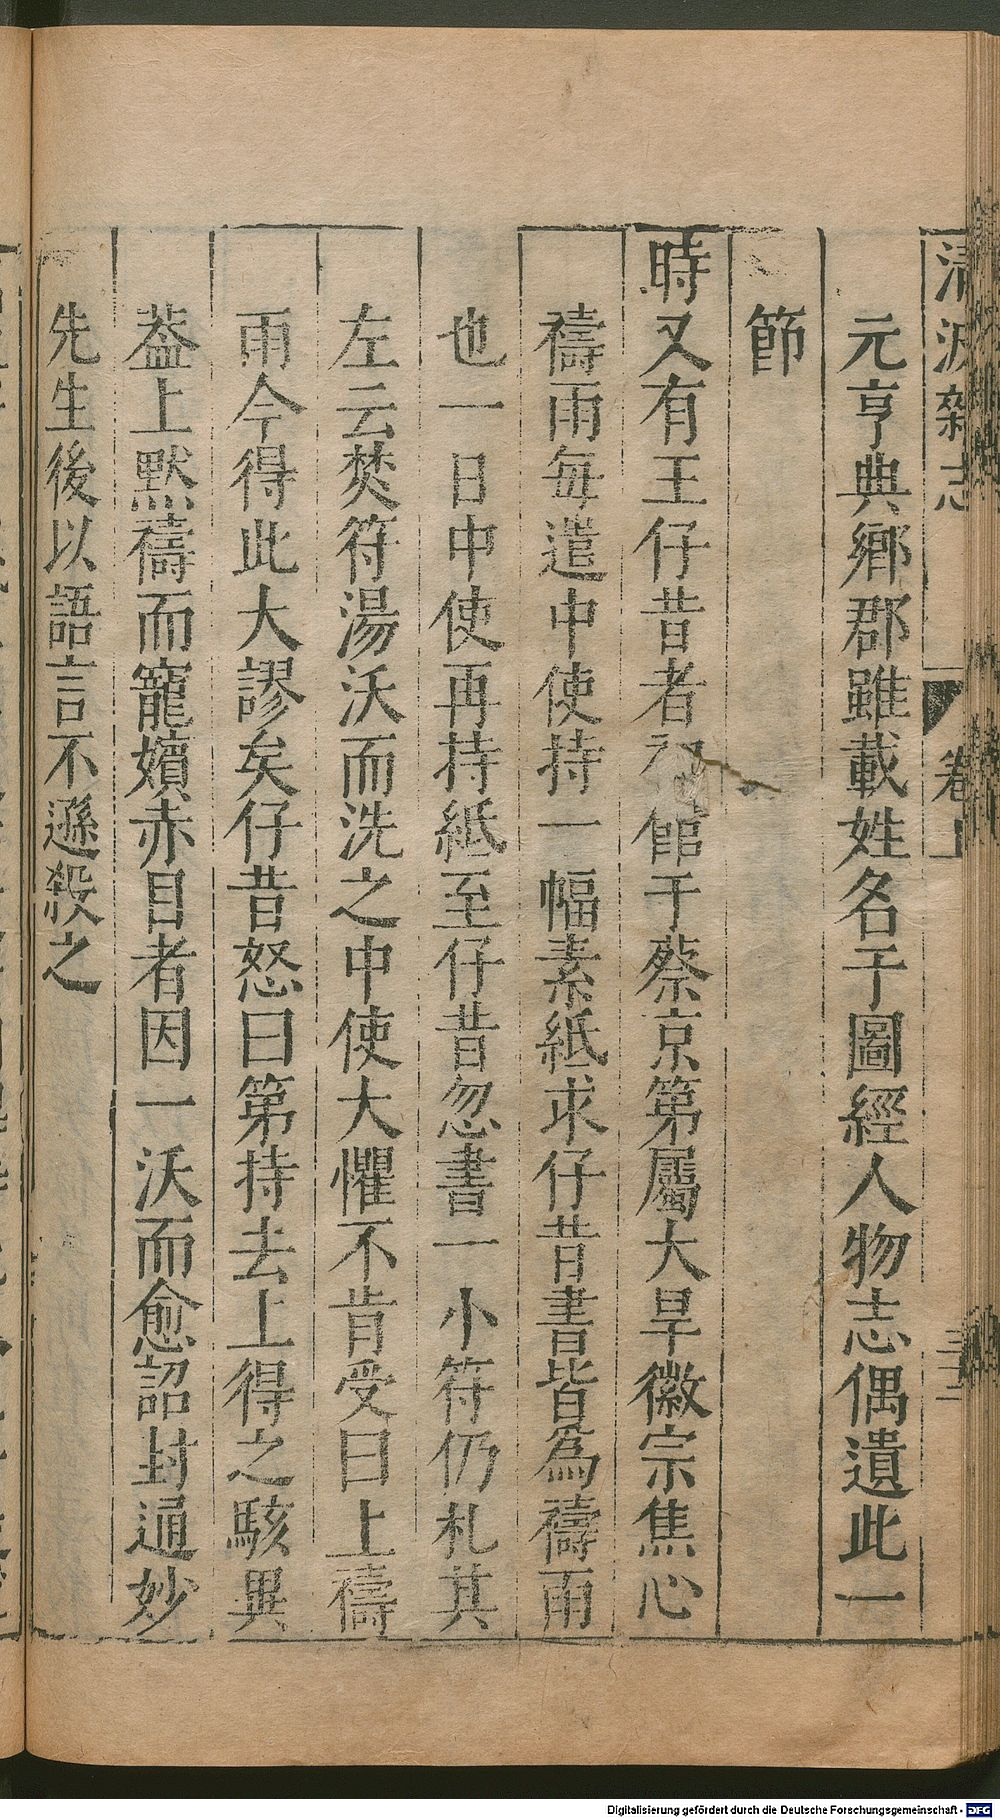 清波雜志 卷上 三十二
元亨典鄉郡雖載姓名于圖經人物志偶遺此一
節
時又有王仔昔者初館于蔡京第屬大旱徽宗焦心
禱雨每遣中使持一幅素紙求仔昔書皆為禱雨
也一日中使再持紙至仔昔忽書一小符仍札其
左云焚符湯沃而洗之中使大懼不肯受曰上禱
雨今得此大謬矣仔昔怒曰第持去上得之駭異
葢上默禱而寵嬪赤目者因一沃而愈詔封通妙
先生後以語言不遜殺之
Digitalisierung gefördert durch die Deutsche Forschungsgemeinschaft - DFG